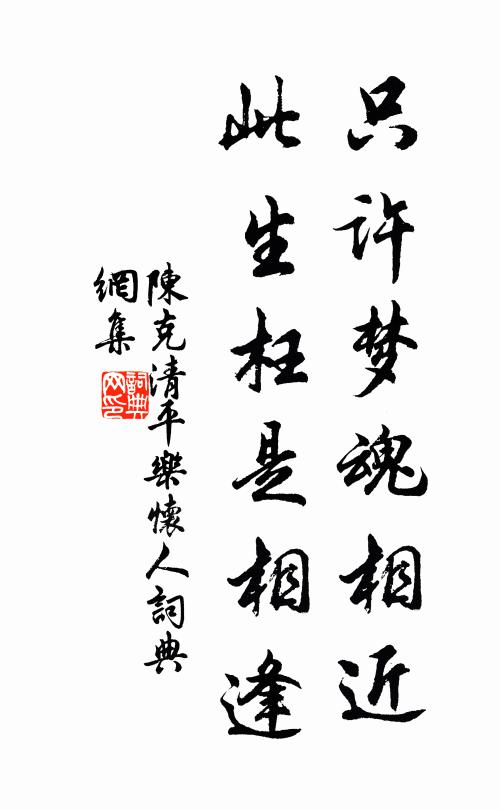 只许梦魂相近
此生枉是相逢
陳克清平樂懷人詞典
網集
詞典
网印